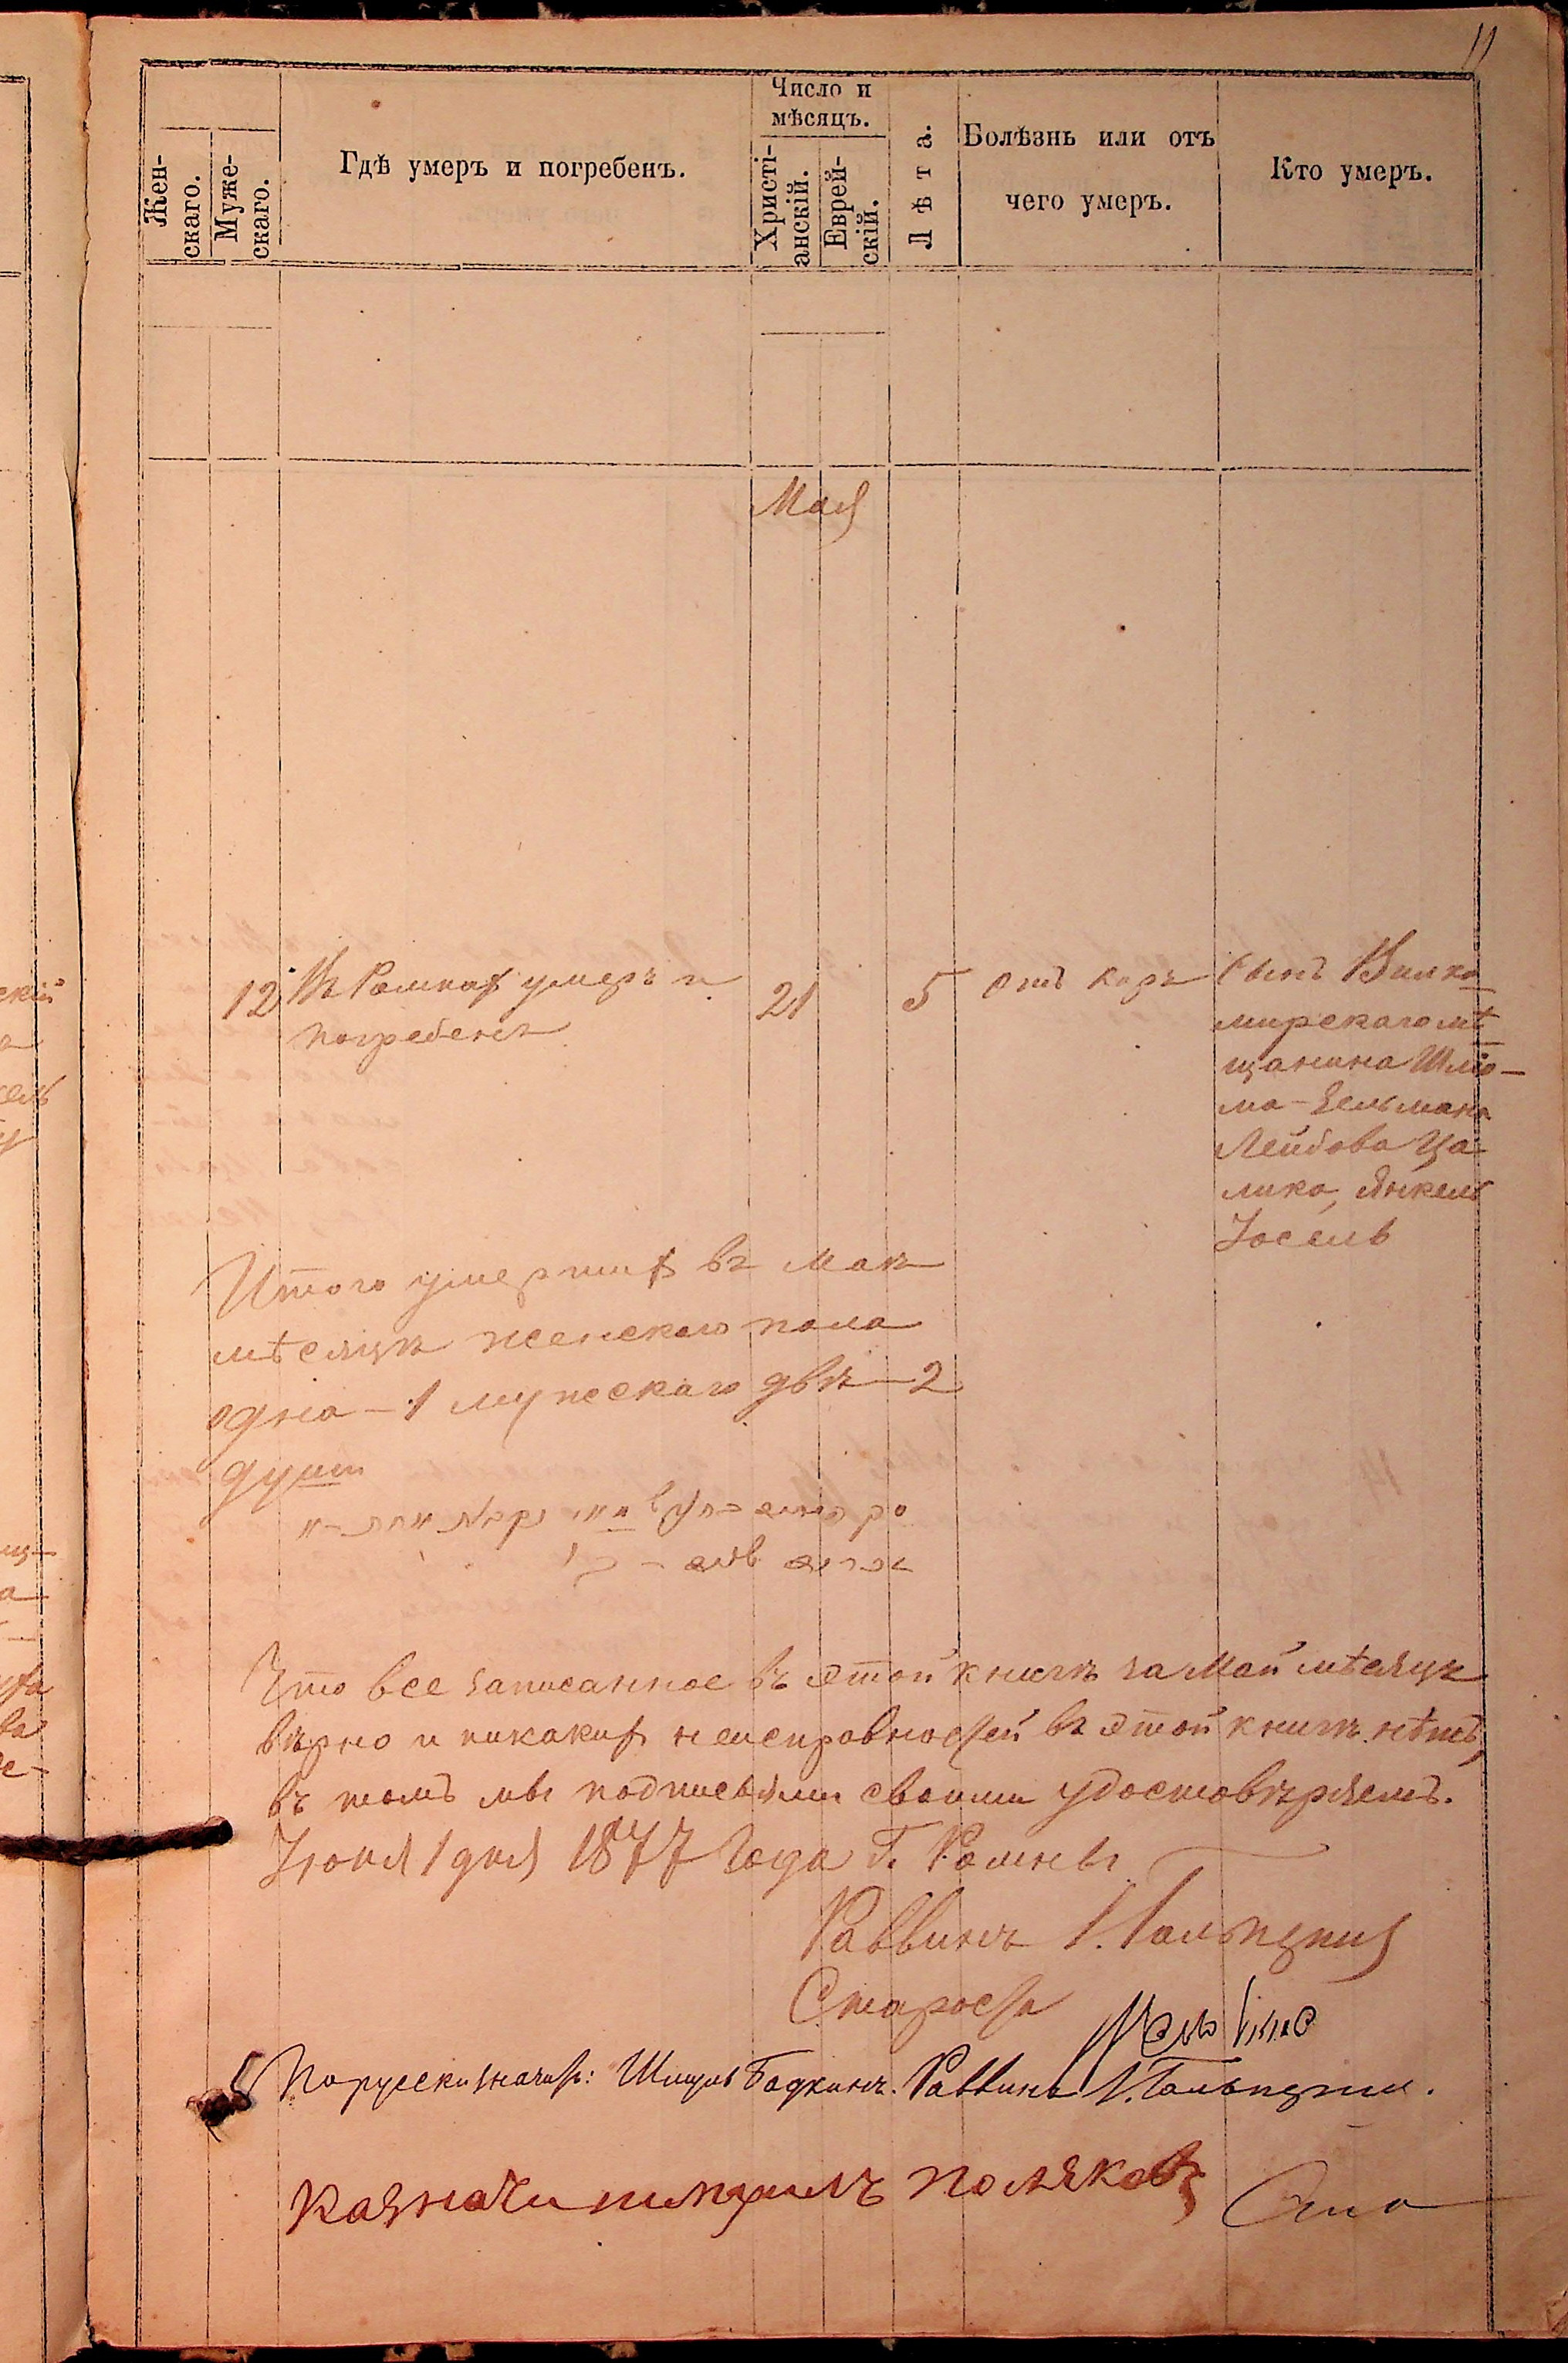 11
Жен-
скаго.
Муже-
скаго.
Гдѣ умеръ и погребенъ.
Число и
мѣсяцъ.
Христі-
анскій.
Еврей-
скій.
Лѣта.
Болѣзнь или отъ
чего умеръ.
Кто умеръ.
Мая
12 Въ Ромнах умеръ и 21 5 отъ коръ Сынъ Вилко
погребенъ мирскаго мѣ
щанина Шлio-
ма-Зельмана
Лейбова Ца-
лика, Янкель
Іосель
Итого умерших въ Маѣ
мѣсяцѣ женскаго пола
одна-1 мужскаго двѣ-2
души
Что все записанное въ этой книгѣ за Май мѣсяцъ
вѣрно и никаких неисправностей въ этой книгѣ нѣтъ,
въ томъ мы подписями своими удостовѣряемъ.
Іюня 1 дня 1877 Года Г. Ромны
Раввинъ
Староста
По русски значит: Бадкинъ. Раввинъ
Казначи Поляковъ